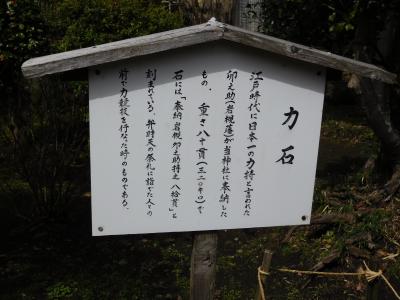 力石
江戸時代に日本一の力持と言われた
卯之助(岩槻藩)が当神社に奉納した
もの、重さ八十貫(三二〇キロ)で
石には、「奉納岩槻卯之助持之 八拾貫」と
刻まれている、弁財天の祭礼に詣でた人々の
前で力競技を行なった時のものである。